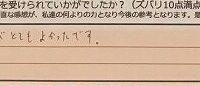 を受けられていかがでしたか？（ズバリ10点満点
直な感想が、私達の何よりの力となり今後の参考となります。是
とても よかったです。